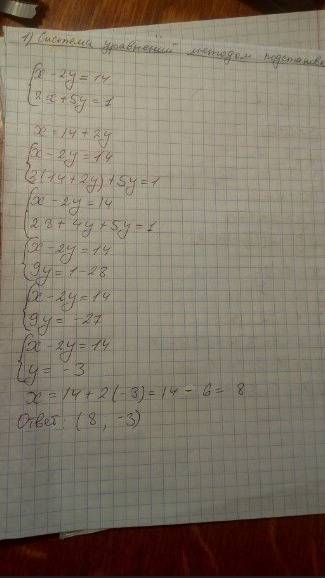 1) Система уравнений методом подстановки
{ x - 2y = 14
{ 2x + 5y = 1
x = 14 + 2y
{ x - 2y = 14
{ 2(14 + 2y) + 5y = 1
{ x - 2y = 14
{ 28 + 4y + 5y = 1
{ x - 2y = 14
{ 9y = 1 - 28
{ x - 2y = 14
{ 9y = -27
{ x - 2y = 14
{ y = -3
x = 14 + 2(-3) = 14 - 6 = 8
Ответ: (8, -3)